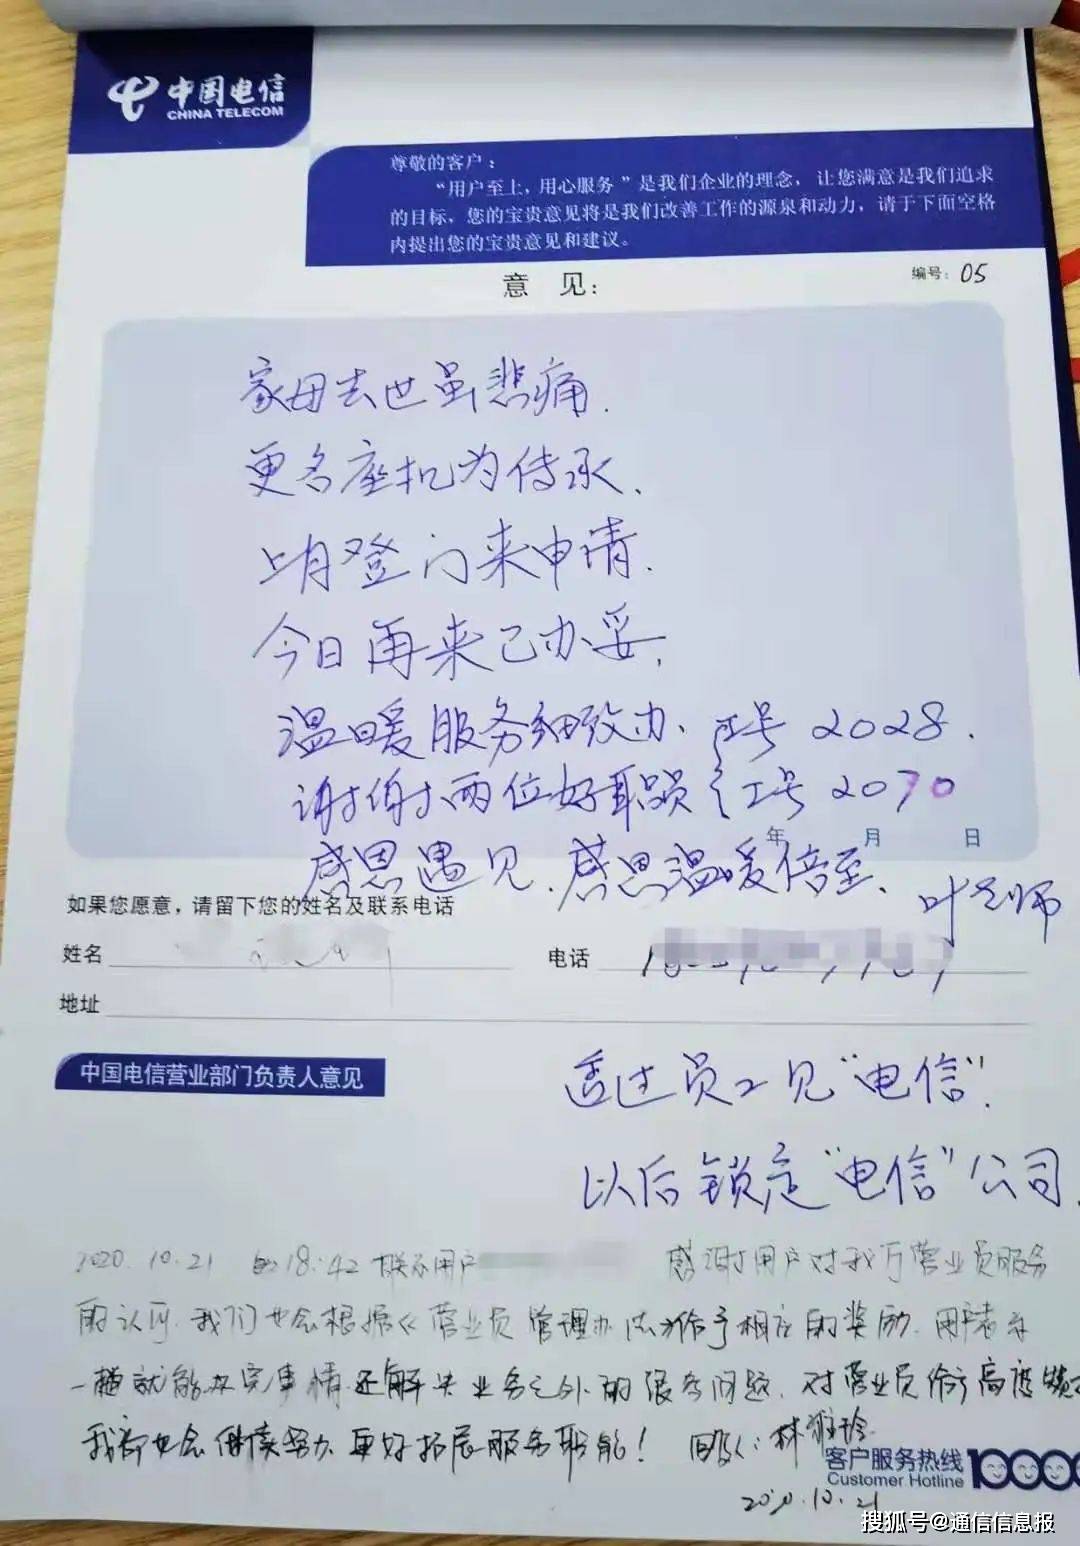 中国电信
CHINA TELECOM
尊敬的客户：
“用户至上，用心服务”是我们企业的理念，让您满意是我们追求
的目标，您的宝贵意见将是我们改善工作的源泉和动力，请于下面空格
内提出您的宝贵意见和建议。
意 见：
编号：05
家母去世虽悲痛.
更名座机为传承.
上月登门来申请.
今日再来已办妥.
温暖服务细致办、工号 2028.
谢谢两位好职员 工号 2070
年 月 日
感恩遇见.感恩温暖倍至.
叶老师
如果您愿意，请留下您的姓名及联系电话
姓名
电话
地址
中国电信营业部门负责人意见
透过员工见“电信”.
以后锁定“电信”公司.
2020.10.21 18:42 联系用户 感谢用户对我方营业员服务
的认可.我们也会根据《营业员管理办法》给予相应的奖励.用户表示
一趟就能办完事情.还解决业务之外的很多问题.对营业员给予高度赞
我部也会继续努力.更好拓展服务职能！ 回复人：林雅玲
客户服务热线 10000
Customer Hotline
2020.10.21
搜狐号@通信信息报